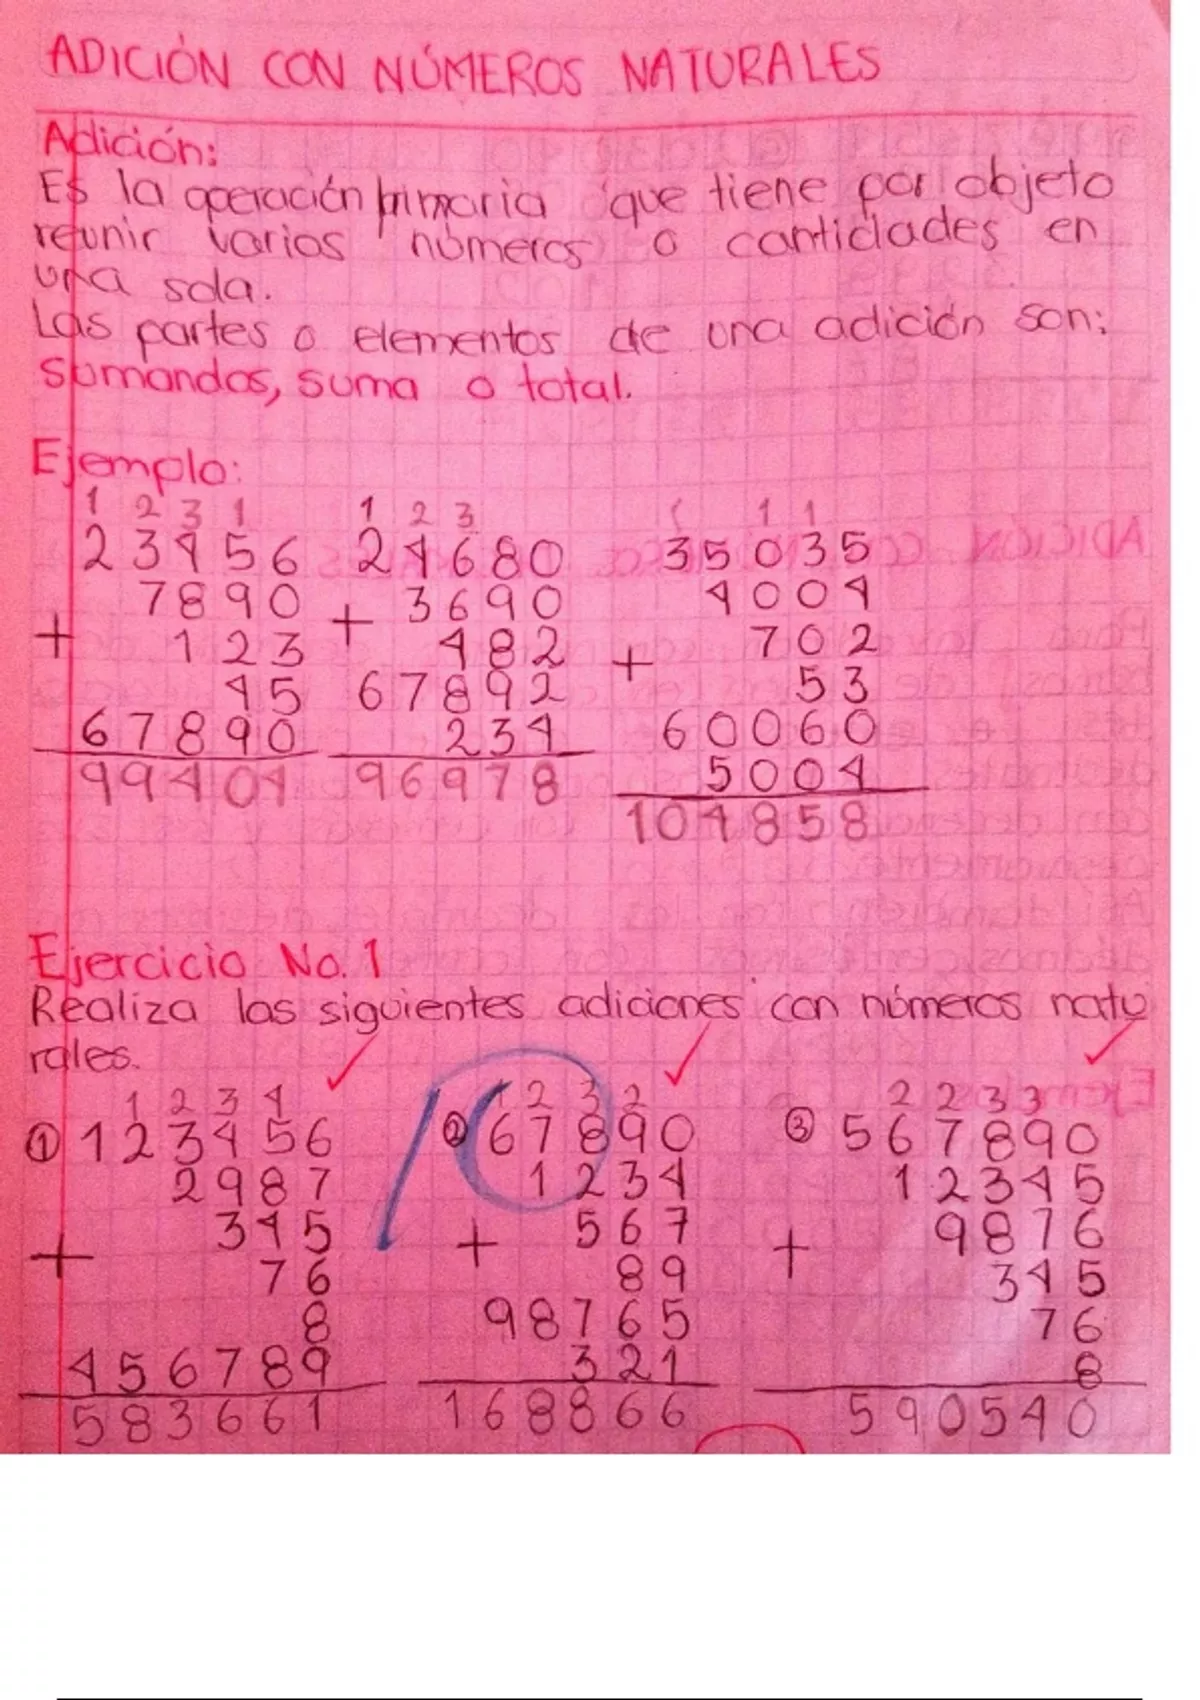 ADICIÓN CON NÚMEROS NATURALES
Adición:
Es la operación primaria que tiene por objeto
reunir varios números o cantidades en
una sola.
Las partes o elementos de una adición son:
Sumandos, suma o total.
Ejemplo:
1 2 3 1 1 2 3 1 1 1
23456 24680 35035
7890 3690 4004
+ 123 + 482 + 702
45 67892 53
67890 234 60060
99404 96978 5004
104858
Ejercicio No. 1
Realiza las siguientes adiciones con números natu
rales.
1 2 3 4 1 2 3 2 2 2 3 3
① 123456 ② 67890 ③ 567890
2987 1234 12345
+ 345 + 567 + 9876
76 89 345
8 98765 76
456789 321 8
583661 168866 590540